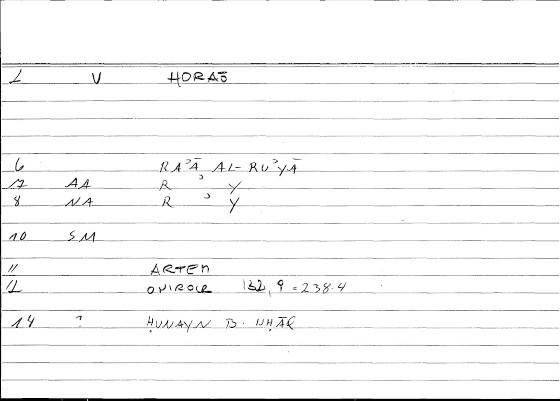 1 V HORAŌ
6 RAʾĀ AL-RUʾYĀ
7 AA R ʾ Y
8 NA R ʾ Y
10 SM
11 ARTEM
12 ONIROCR 132, 9 = 238.4
14 ? ḤUNAYN B. ISḤĀQ